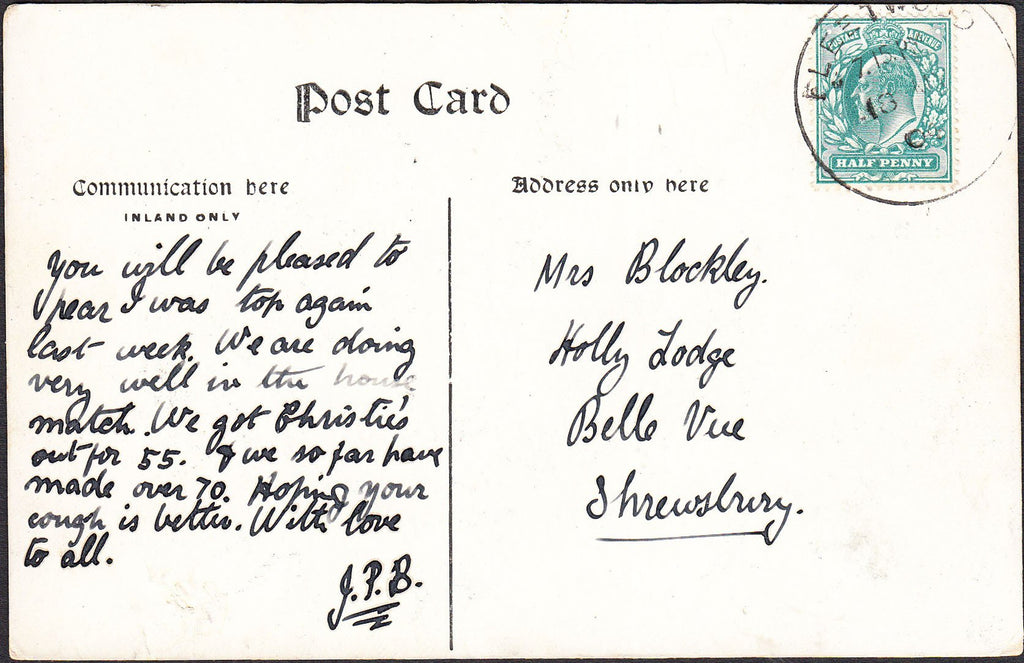 Post Card
Communication here
INLAND ONLY
Address only here
FLEETWOOD
7.15 P
POSTAGE & REVENUE
HALF PENNY
You will be pleased to
hear I was top again
last week. We are doing
very well in the house
match. We got Christie's
out for 55. & we so far have
made over 70. Hoping your
cough is better. With love
to all.
J.P.B.
Mrs Blockley.
Holly Lodge
Belle Vue
Shrewsbury.